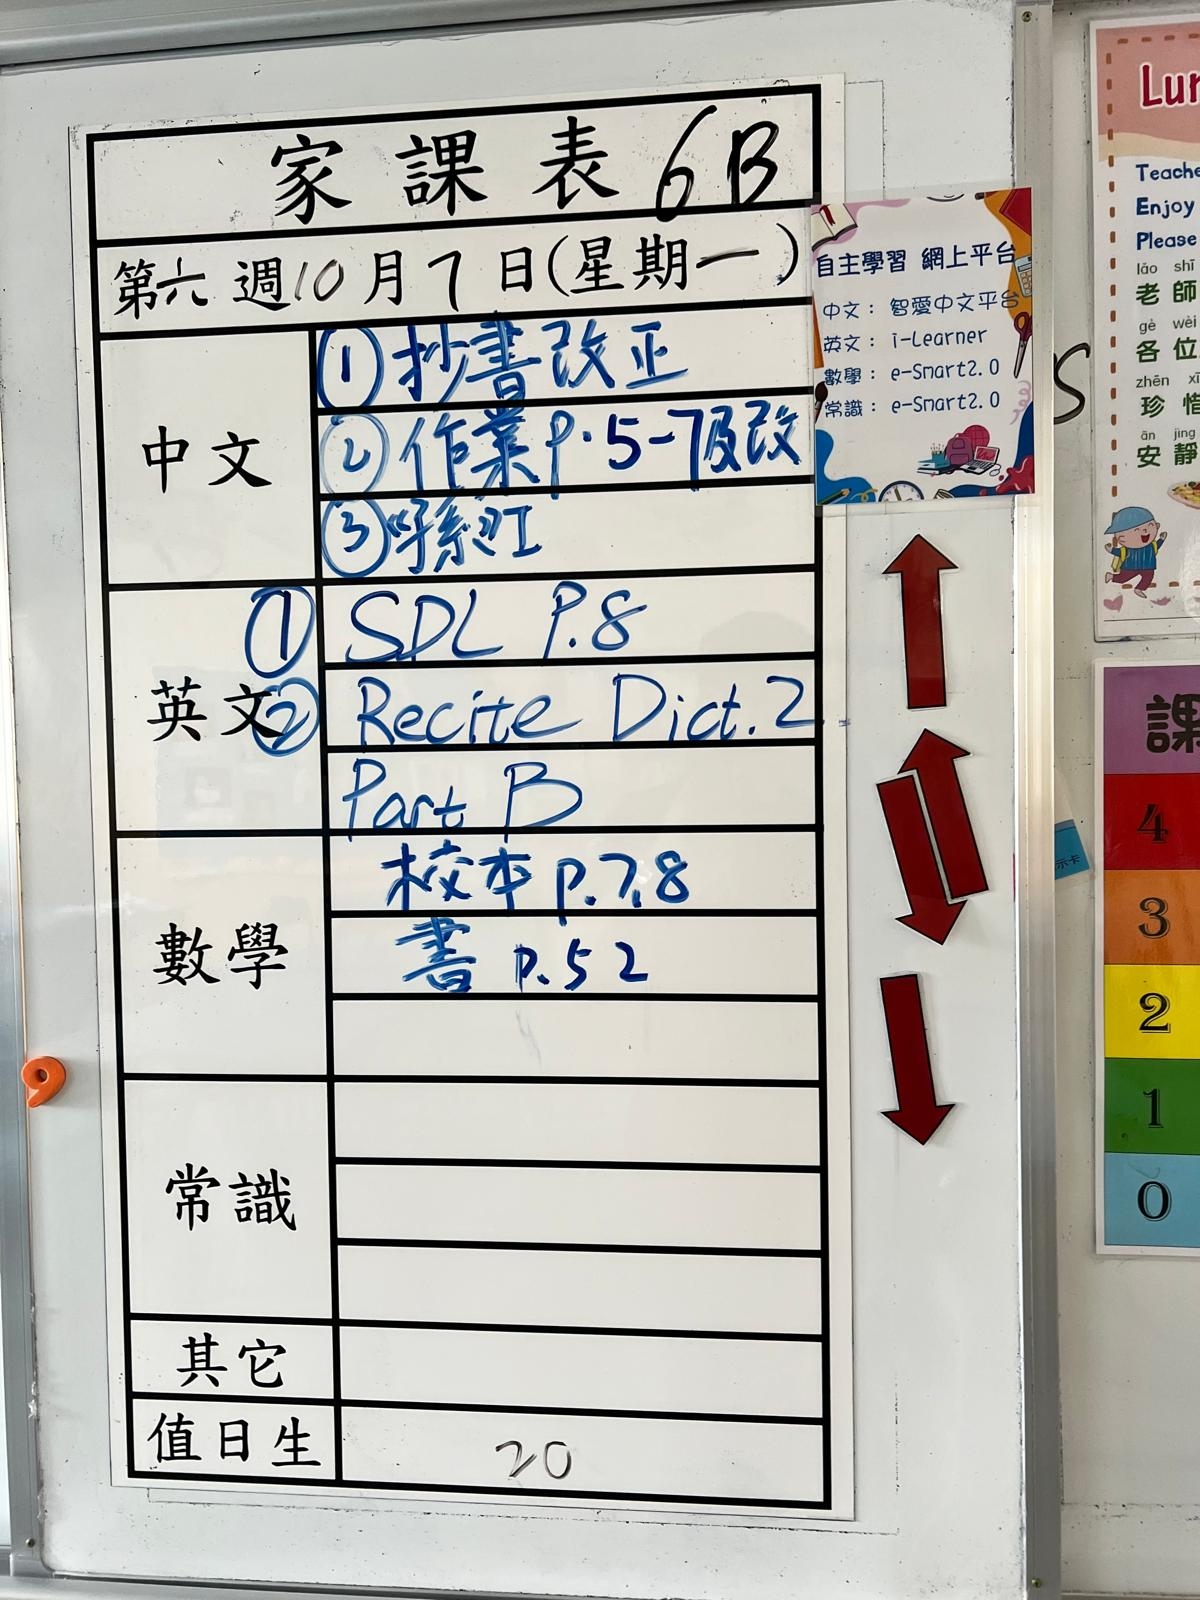 家課表 6B
第六週10月7日(星期一)
中文
①抄書改正
②作業P.5-7及改
③
英文
① SDL P.8
② Recite Dict.2
Part B
數學
校本 p.7,8
書 p.52
常識
其它
值日生
20
自主學習 網上平台
中文: 智愛中文平台
英文: i-Learner
數學: e-Smart2.0
常識: e-Smart2.0
9
s
Teache
Enjoy
Please
lǎo shī
老師
gè wèi
各位
zhēn xī
珍惜
ān jìng
安靜
課
4
3
2
1
0
示卡